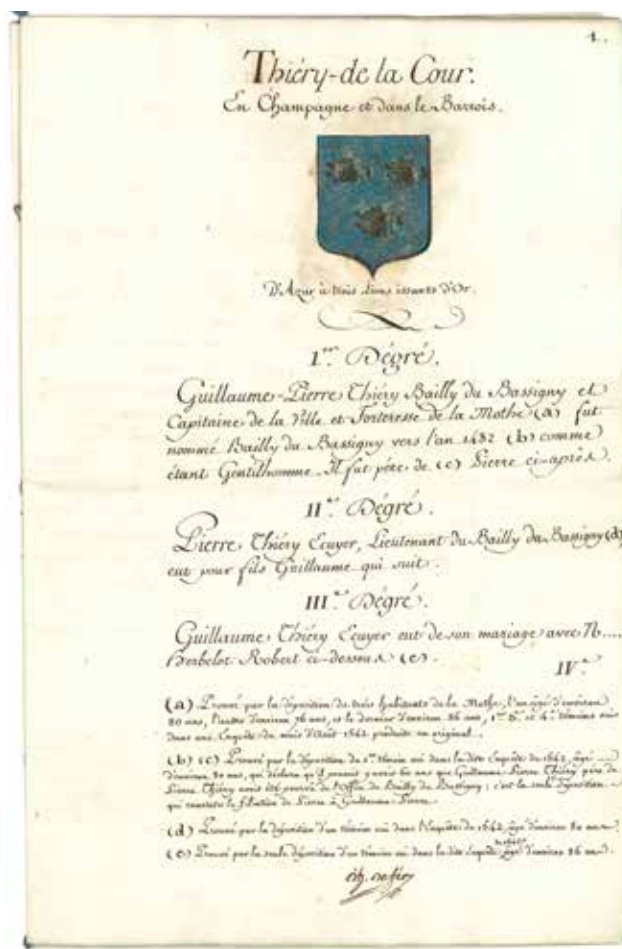 1.
Thiéry-de la Cour.
En Champagne et dans le Barrois.
D'Azur à trois Lions issants d'Or.
I.er Dégré.
Guillaume-Pierre Thiéry Bailly du Bassigny et
Capitaine de la Ville et Forteresse de la Mothe (a) fut
nommé Bailly du Bassigny vers l'an 1482 (b) comme
étant Gentilhomme. Il fut père de (c) Pierre ci-après.
II.e Dégré.
Pierre Thiéry Ecuyer, Lieutenant du Bailly du Bassigny (d)
eut pour fils Guillaume qui suit.
III.e Dégré.
Guillaume Thiéry Ecuyer eut de son mariage avec N....
Herbelot Robert ci-dessous (e).
IV.e
(a) Prouvé par la déposition de trois habitants de la Mothe, l'un âgé d'environ
80 ans, l'autre d'environ 76 ans, et le dernier d'environ 86 ans, 1.er et 4.e témoins ouis
dans une Enquête du mois d'Août 1562 produite en original.
(b) (c) Prouvé par la déposition du 1.er témoin oui dans la dite Enquête de 1562, âgé
d'environ 80 ans, qui déclara qu'il y avoit 60 ans que Guillaume-Pierre Thiéry père de
Pierre Thiéry avoit été pourvu de l'Office de Bailly du Bassigny; c'est la seule déposition
qui constate la filiation de Pierre à Guillaume-Pierre.
(d) Prouvé par la déposition d'un témoin oui dans l'Enquête de 1562, âgé d'environ 80 ans.
(e) Prouvé par la seule déposition d'un témoin oui dans la dite Enquête âgé d'environ 86 ans.